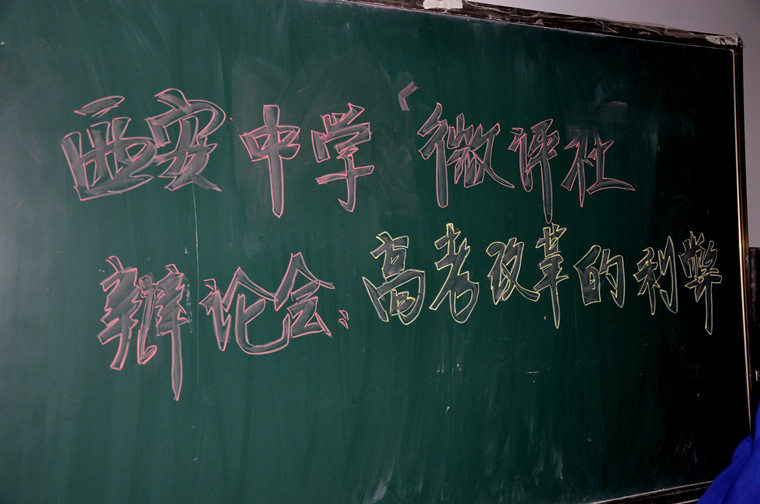 西安中学“微评社
辩论会:高考改革的利弊